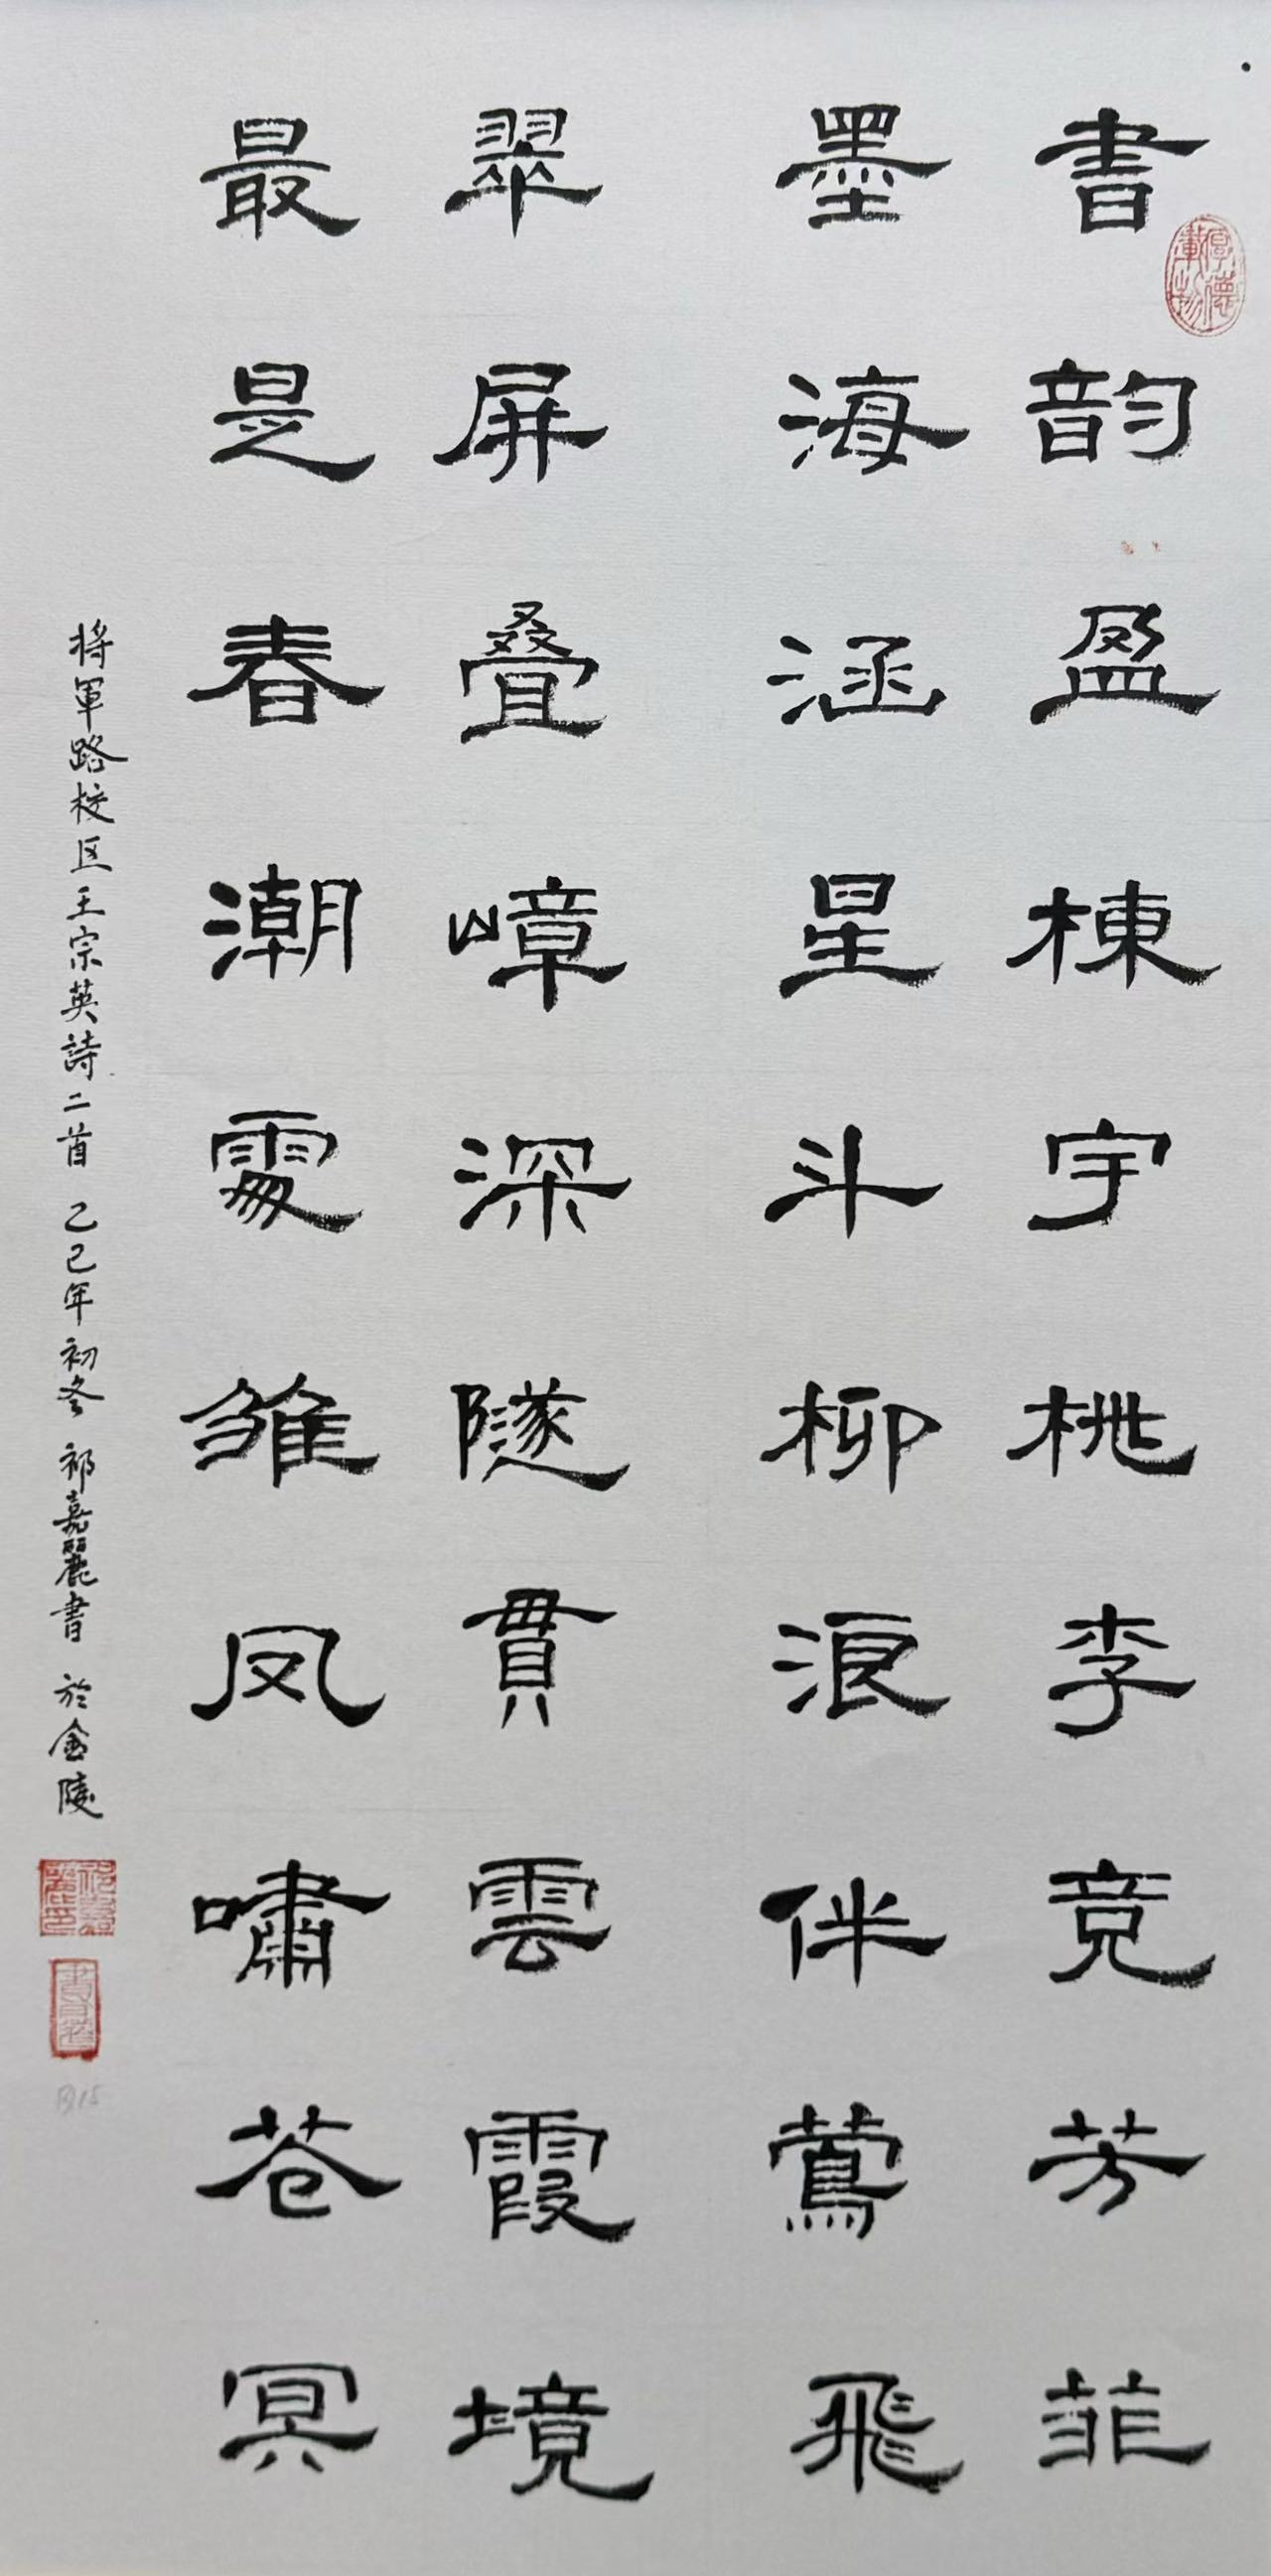 書韵盈棟宇桃李竞芳菲
墨海涵星斗柳浪伴鶯飛
翠屏叠嶂深隧貫雲霞境
最是春潮處雏凤嘯苍冥
将軍路校区王宗英詩二首 乙巳年初冬 祁嘉麗書 於金陵
厚德載物